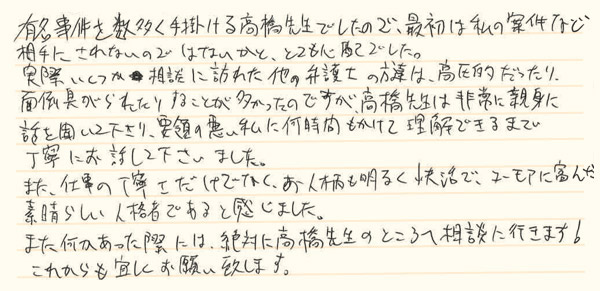 有名事件を数多く手掛ける高橋先生でしたので、最初は私の案件など
相手にされないのではないかと、とても心配でした。
実際いくつか相談に訪れた他の弁護士の方達は、高圧的だったり、
面倒臭がられたりすることが多かったのですが、高橋先生は非常に親身に
話を聞いて下さり、要領の悪い私に何時間もかけて理解できるまで
丁寧にお話して下さいました。
また、仕事の丁寧さだけでなく、お人柄も明るく快活で、ユーモアに富んだ
素晴らしい人格者であると感じました。
また何かあった際には、絶対に高橋先生のところへ相談に行きます!
これからも宜しくお願い致します。